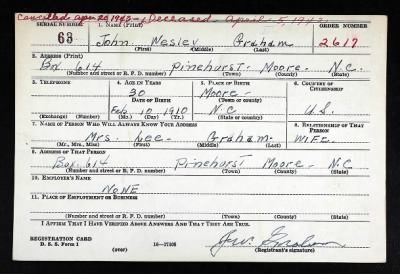 Cancelled Apr. 20, 1943 - Deceased April 5, 1943
SERIAL NUMBER 1. NAME (Print) ORDER NUMBER
63 John Wesley Graham 2617
(First) (Middle) (Last)
2. ADDRESS (Print)
Box 614 Pinehurst Moore N.C.
(Number and street or R. F. D. number) (Town) (County) (State)
3. TELEPHONE 4. AGE IN YEARS 5. PLACE OF BIRTH 6. COUNTRY OF CITIZENSHIP
30 Moore
DATE OF BIRTH (Town or county)
Feb 10 1910 N.C U.S.
(Exchange) (Number) (Mo.) (Day) (Yr.) (State or country)
7. NAME OF PERSON WHO WILL ALWAYS KNOW YOUR ADDRESS 8. RELATIONSHIP OF THAT PERSON
Mrs. Lee Graham WIFE.
(Mr., Mrs., Miss) (First) (Middle) (Last)
9. ADDRESS OF THAT PERSON
Box. 614 Pinehurst Moore N.C
(Number and street or R. F. D. number) (Town) (County) (State)
10. EMPLOYER'S NAME
NONE
11. PLACE OF EMPLOYMENT OR BUSINESS
(Number and street or R. F. D. number) (Town) (County) (State)
I AFFIRM THAT I HAVE VERIFIED ABOVE ANSWERS AND THAT THEY ARE TRUE.
REGISTRATION CARD
D. S. S. Form 1 (over) 16-17105 J.W. Graham
(Registrant's signature)